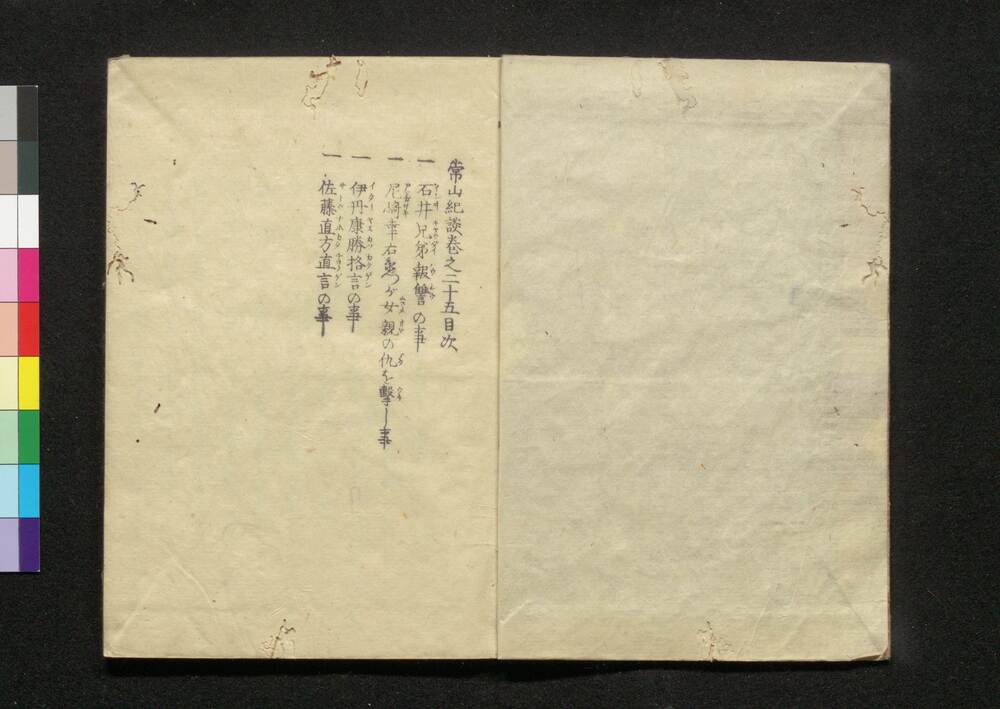 常山紀談巻之二十五目次
一 石井兄弟報讐の事
一 尼崎幸右衛門が女親の仇を撃し事
一 伊丹康勝格言の事
一 佐藤直方直言の事